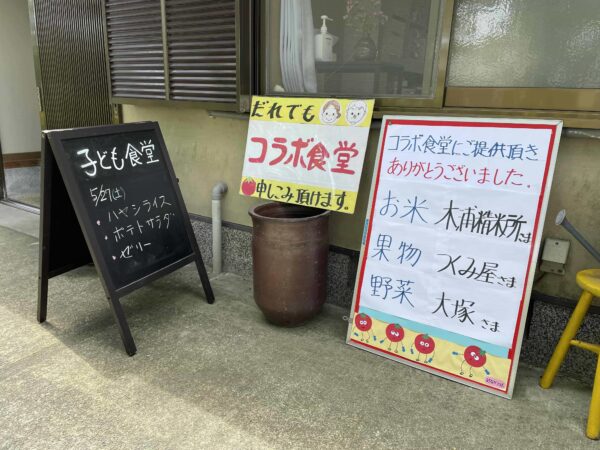 子ども食堂
5/27(土)
・ハヤシライス
・ポテトサラダ
・ゼリー
だれでも
コラボ食堂
申しこみ頂けます。
コラボ食堂にご提供頂き
ありがとうございました。
お米 木浦精米所さま
果物 つくみ屋さま
野菜 大塚さま